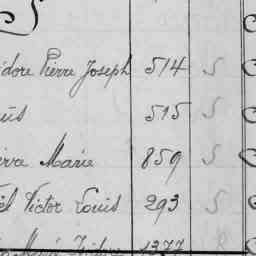 idore Pierre Joseph 514 S
515 S
erre Marie 859 S
el Victor Louis 293 S
1377